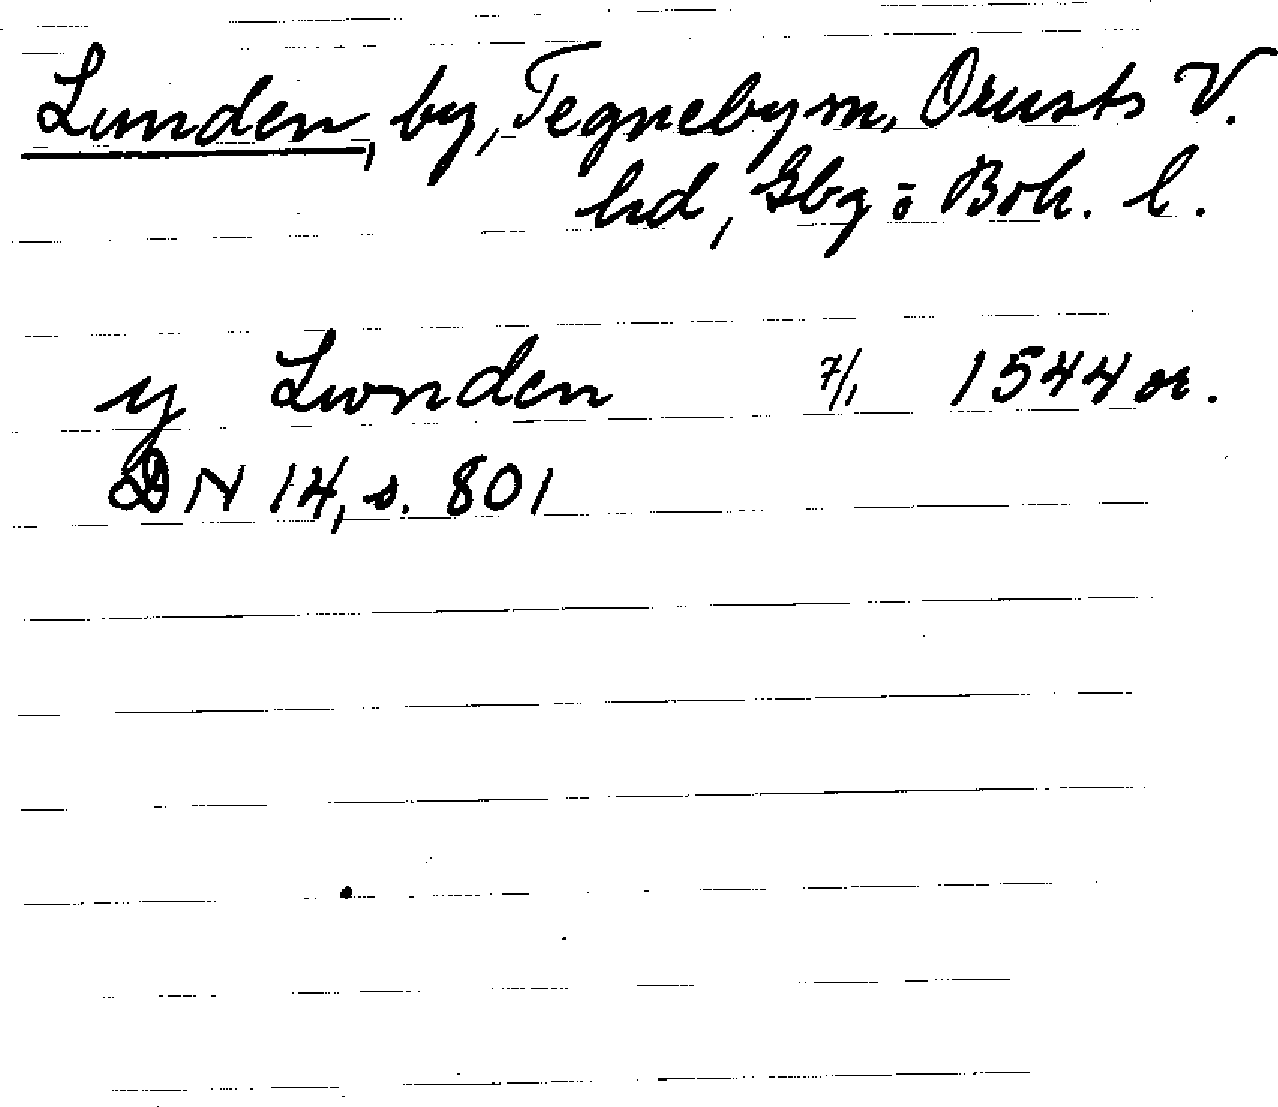 Lunden, by, Tegneby sn, Orusts V.
hd, Gbg o Boh. l.
y Lwnden 7/1 1544 or.
DN 14, s. 801